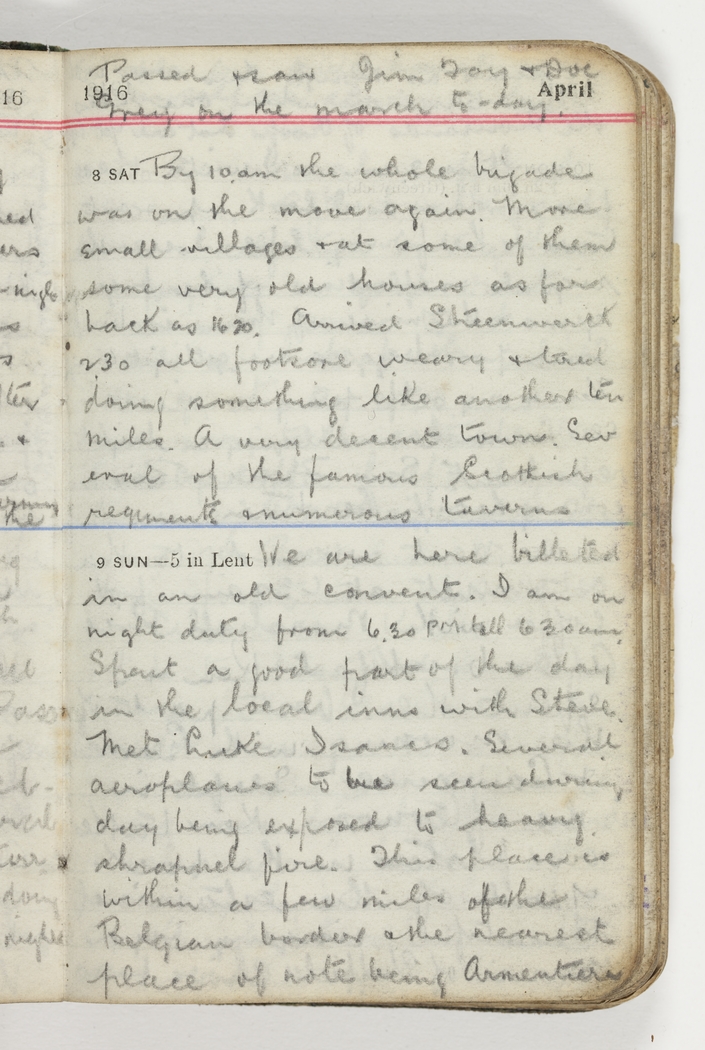 16
Passed & saw Jim Foy & Doc
1916 April
Greig on the march to-day.
8 SAT By 10.am the whole brigade
was on the move again. More
small villages & at some of them
some very old houses as far
back as 1620. Arrived Steenwerck
230 all footsore weary & tired
doing something like another ten
miles. A very decent town. Sev
eral of the famous Scottish
regiments & numerous taverns
9 SUN—5 in Lent We are here billeted
in an old convent. I am on
night duty from 6.30 P.M. till 6 30 am.
Spent a good part of the day
in the local inns with Steve.
Met Luke Isaacs. Several
aeroplanes to be seen during
day being exposed to heavy
shrapnel fire. This place is
within a few miles of the
Belgian border & the nearest
place of note being Armentiers